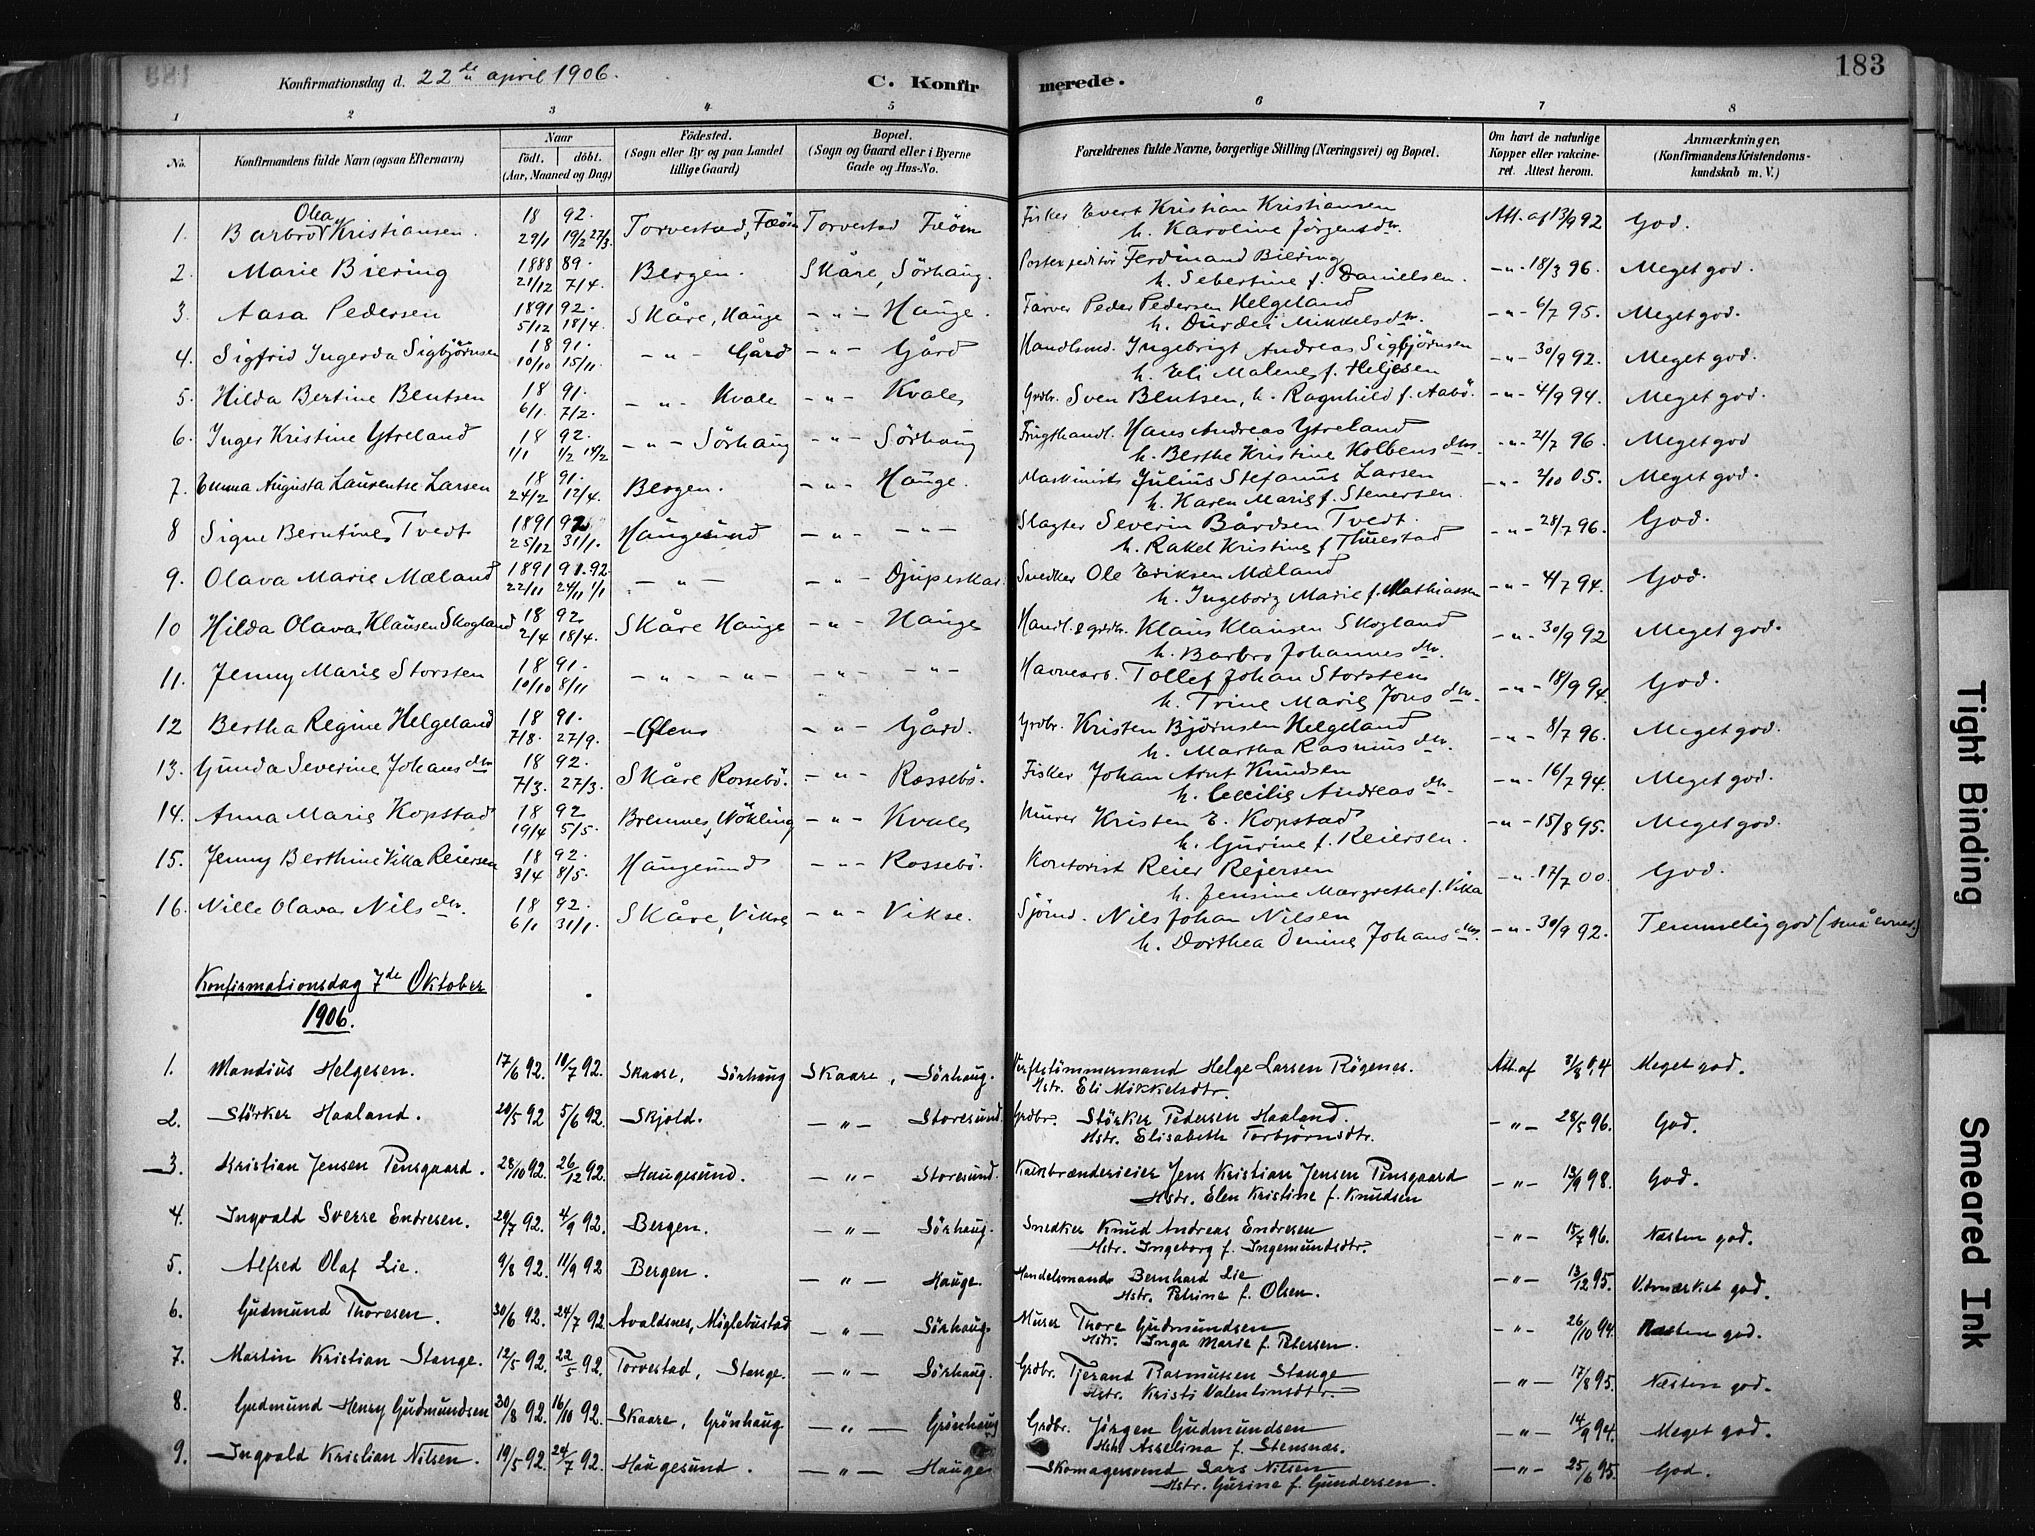 183
Konfirmationsdag d. 22de april 1906.
C. Konfirmerede.
1 2 3 4 5 6 7 8
No. Konfirmandens fulde Navn (ogsaa Efternavn) Naar født. døbt. (Aar, Maaned og Dag) Fødested. (Sogn eller By og paa Landet tillige Gaard) Bopæl. (Sogn og Gaard eller i Byerne Gade og Hus-No. Forældrenes fulde Navne, borgerlige Stilling (Næringsvei) og Bopæl. Om havt de naturlige Kopper eller vakcineret. Attest herom. Anmærkninger. (Konfirmandens Kristendomskundskab m. V.)
1. Barbro Olea Kristiansen. 18 92. 29/1 19/2 27/3 Torvestad, Fæöen Torvestad Fæöen Fisker Evert Kristian Kristiansen Att. af 13/9 92 God.
h. Karoline Jörgensdtr.
2. Marie Biering 1888 89. 21/12 7/4. Bergen. Skåre, Sörhaug. Postexpeditör Ferdinand Biering -"- 18/3 96. Meget god.
h. Sebertine f. Danielsen.
3. Aasa Pedersen 1891 92. 5/12 18/4. Skåre, Hauge -"- Hauge. Farver Peder Pedersen Helgeland -"- 6/7 95. Meget god.
h. Durdei Mikkelsdtr.
4. Sigfrid Ingerda Sigbjörnsen 18 91. 10/10 15/11. -"- Gård -"- Gård Handlsmd. Ingebrigt Andreas Sigbjörnsen -"- 30/9 92. Meget god.
h. Eli Malene f. Helgesen
5. Hilda Bertine Bentsen 18 91. 6/1. 7/2. -"- Kvale -"- Kvale Grdbr. Sven Bentsen, h. Ragnhild f. Aabö. -"- 4/9 94. Meget god.
6. Inger Kristine Ytreland 18 92. 1/1 1/2 14/2 -"- Sörhaug -"- Sörhaug Frugthandl. Hans Andreas Ytreland -"- 21/7 96. Meget god
h. Berthe Kristine Kolbensdtr.
7. Emma Augusta Laurentse Larsen 18 91. 24/2 12/4. Bergen. -"- Hauge. Maskinist Julius Stefanus Larsen -"- 2/10 05. Meget god.
h. Karen Marie f. Stenersen.
8 Signe Berntine Tvedt 1891 92 25/12 31/1. Haugesund -"- -"- Slagter Severin Bårdsen Tvedt. -"- 28/7 96. God.
h. Rakel Kristine f. Thuestad
9. Olava Marie Mæland 1891 91.92. 22/11 24/11 1/1 -"- -"- Djupeskar Snedker Ole Eriksen Mæland -"- 4/7 94. God.
h. Ingeborg Marie f. Mathiassen
10 Hilda Olava Klausen Skogland 18 92. 2/4 18/4. Skåre Hauge -"- Hauge Handl. & grdbr. Klaus Klausen Skogland -"- 30/9 92 Meget god.
h. Barbro Johannesdtr.
11. Jenny Marie Storsten 18 91. 10/10 8/11 -"- -"- -"- -"- Havnearb. Tollef Johan Storsten -"- 18/9 94. God.
h. Trine Marie Jonsdtr.
12 Bertha Regine Helgeland 18 91. 7/8. 27/9. Ölen -"- Gård. Grdbr. Kristen Bjørnsen Helgeland -"- 8/7 96. Meget god.
h. Martha Rasmusdtr.
13. Gunda Severine Johansdtr 18 92. 7/3. 27/3. Skåre Rossebö. -"- Rossebö. Fisker Johan Arnt Knudsen -"- 16/7 94. Meget god.
h. Cecilie Andreasdtr.
14. Anna Marie Kopstad 18 92 19/4 5/5. Bremnes, Mökling -"- Kvale Murer Kristen E. Kopstad -"- 15/8 95. Meget god.
h. Gurine f. Reiersen.
15. Jenny Berthine Vika Reiersen 18 92. 3/4 8/5. Haugesund -"- Rossebö. Kontorist Reier Reiersen -"- 17/7 00. God.
h. Jensine Margrethe f. Vika
16. Nille Olava Nilsdtr. 18 92. 6/1 31/1. Skåre, Vikse -"- Vikse. Sjömd. Nils Johan Nilsen -"- 30/9 92. Temmelig god (små evner)
h. Dorthea Omine Johansdtr.
Konfirmationsdag 7de Oktober
1906.
1. Mandius Helgesen. 17/6 92. 10/7 92. Skaare, Sörhaug Skaare, Sörhaug. Verftstömmermand Helge Larsen Rögenes. Att. af 31/8 94 Meget god.
Hstr. Eli Mikkelsdtr.
2. Störker Haaland. 20/5 92 5/6 92. Skjold. -"- Storesund. Grdbr. Störker Pedersen Haaland. -"- 28/5 96. God.
Hstr. Elisabeth Torbjörnsdtr.
3. Kristian Jensen Pensgaard. 28/10 92. 26/12 92. Haugesund. -"- Storesund. Kalkbrænderieier Jens Kristian Jensen Pensgaard -"- 12/9 98. God.
Hstr. Elen Kristine f. Knudsen
4. Ingvald Sverre Endresen. 29/7 92. 4/9 92. Bergen. -"- Sörhaug. Snedker Knud Andreas Endresen -"- 15/7 96. Næsten god.
Hstr. Ingeborg f. Ingemundsdtr.
5. Alfred Olaf Lie. 9/8 92. 11/9 92 Bergen. -"- Hauge. Handelsmand Bernhard Lie -"- 13/12 95. Udmærket god.
Hstr. Petrine f. Olsen.
6. Gudmund Thoresen. 30/6 92. 24/7 92. Avaldsnes, Miglebustad -"- Sörhaug. Murer Thore Gudmundsen -"- 26/10 94. Næsten god.
Hstr. Inga Marie f. Petersen.
7. Martin Kristian Stange. 12/5 92. 22/5 92. Torvestad, Stange. -"- Sörhaug. Grdbr. Tjerand Rasmussen Stange -"- 17/8 95. Næsten god.
Hstr. Kristi Valentinsdtr.
8. Gudmund Henry Gudmundsen 30/8 92. 16/10 92. Skaare, Grönhaug -"- Grönhaug Grdbr. Jörgen Gudmundsen -"- 14/9 94. Meget god.
Hstr. Asselina f. Stensnæs.
9. Ingvald Kristian Nilsen. 19/5 92. 24/7 92. Haugesund. -"- Hauge. Skomagersvend Lars Nilsen -"- 25/6 95. God.
Hstr. Gurine f. Gundersen.
Tight Binding
Smeared Ink